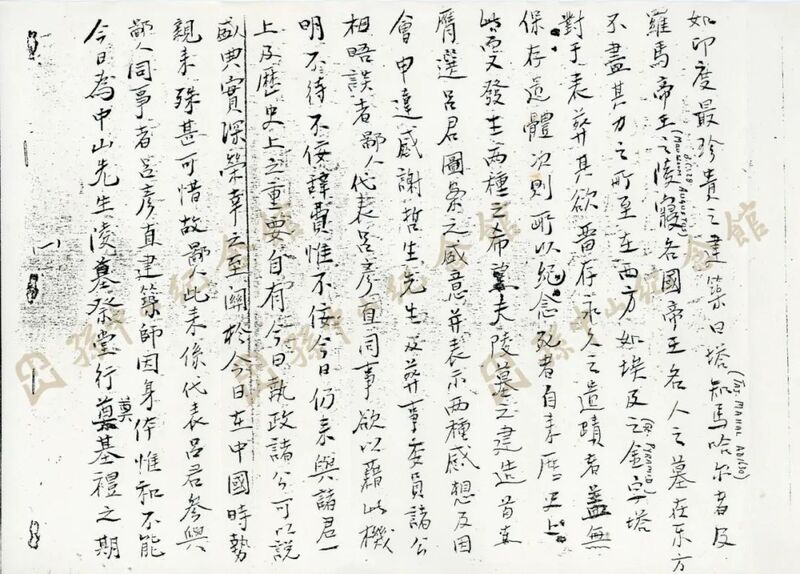 今日為中山先生陵墓祭堂行奠基禮之期
奠
鄙人同事者呂彥直建築師因身体惟和不能
親來殊甚可惜故鄙人此来係代表呂君參與
盛典實深榮幸之至關於今日在中國時勢
上及歷史上之重要自有今日執政諸公可以說
明不待不佞辭費惟不佞今日仍来與諸君一
相晤談者鄙人代表呂彥直同事欲以藉此機
會申達感謝哲生先生及葬事委員諸公
膺選呂君圖案之盛意并表示兩種感想及因
此而發生兩種之希望夫陵墓之建造首在
保存遺體次則所以紀念死者自来歷史上
對于表葬其欲留存永久之遺蹟者蓋無
不盡其力之所至在西方如埃及之金字塔
PYRAMID)
羅馬帝王之陵寢各國帝王名人之墓在东方
如印度最珍貴之建築曰塔知馬哈尔者及
(TAJ MAHAL AD1630)
(一)
孫中山紀念館
孫中山紀念館